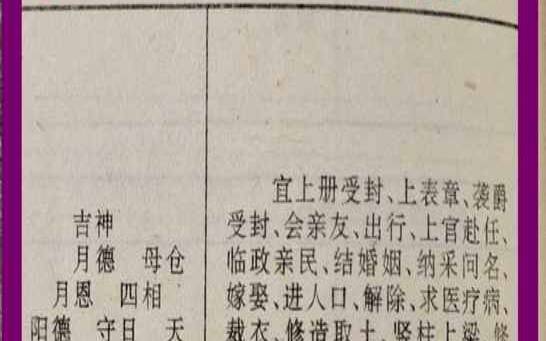 吉神
月德 母仓
月恩 四相
阳德 守日 天
宜上册受封、上表章、袭爵
受封、会亲友、出行、上官赴任、
临政亲民、结婚姻、纳采问名、
嫁娶、进人口、解除、求医疗病、
裁衣、修造取土、竖柱上梁、修